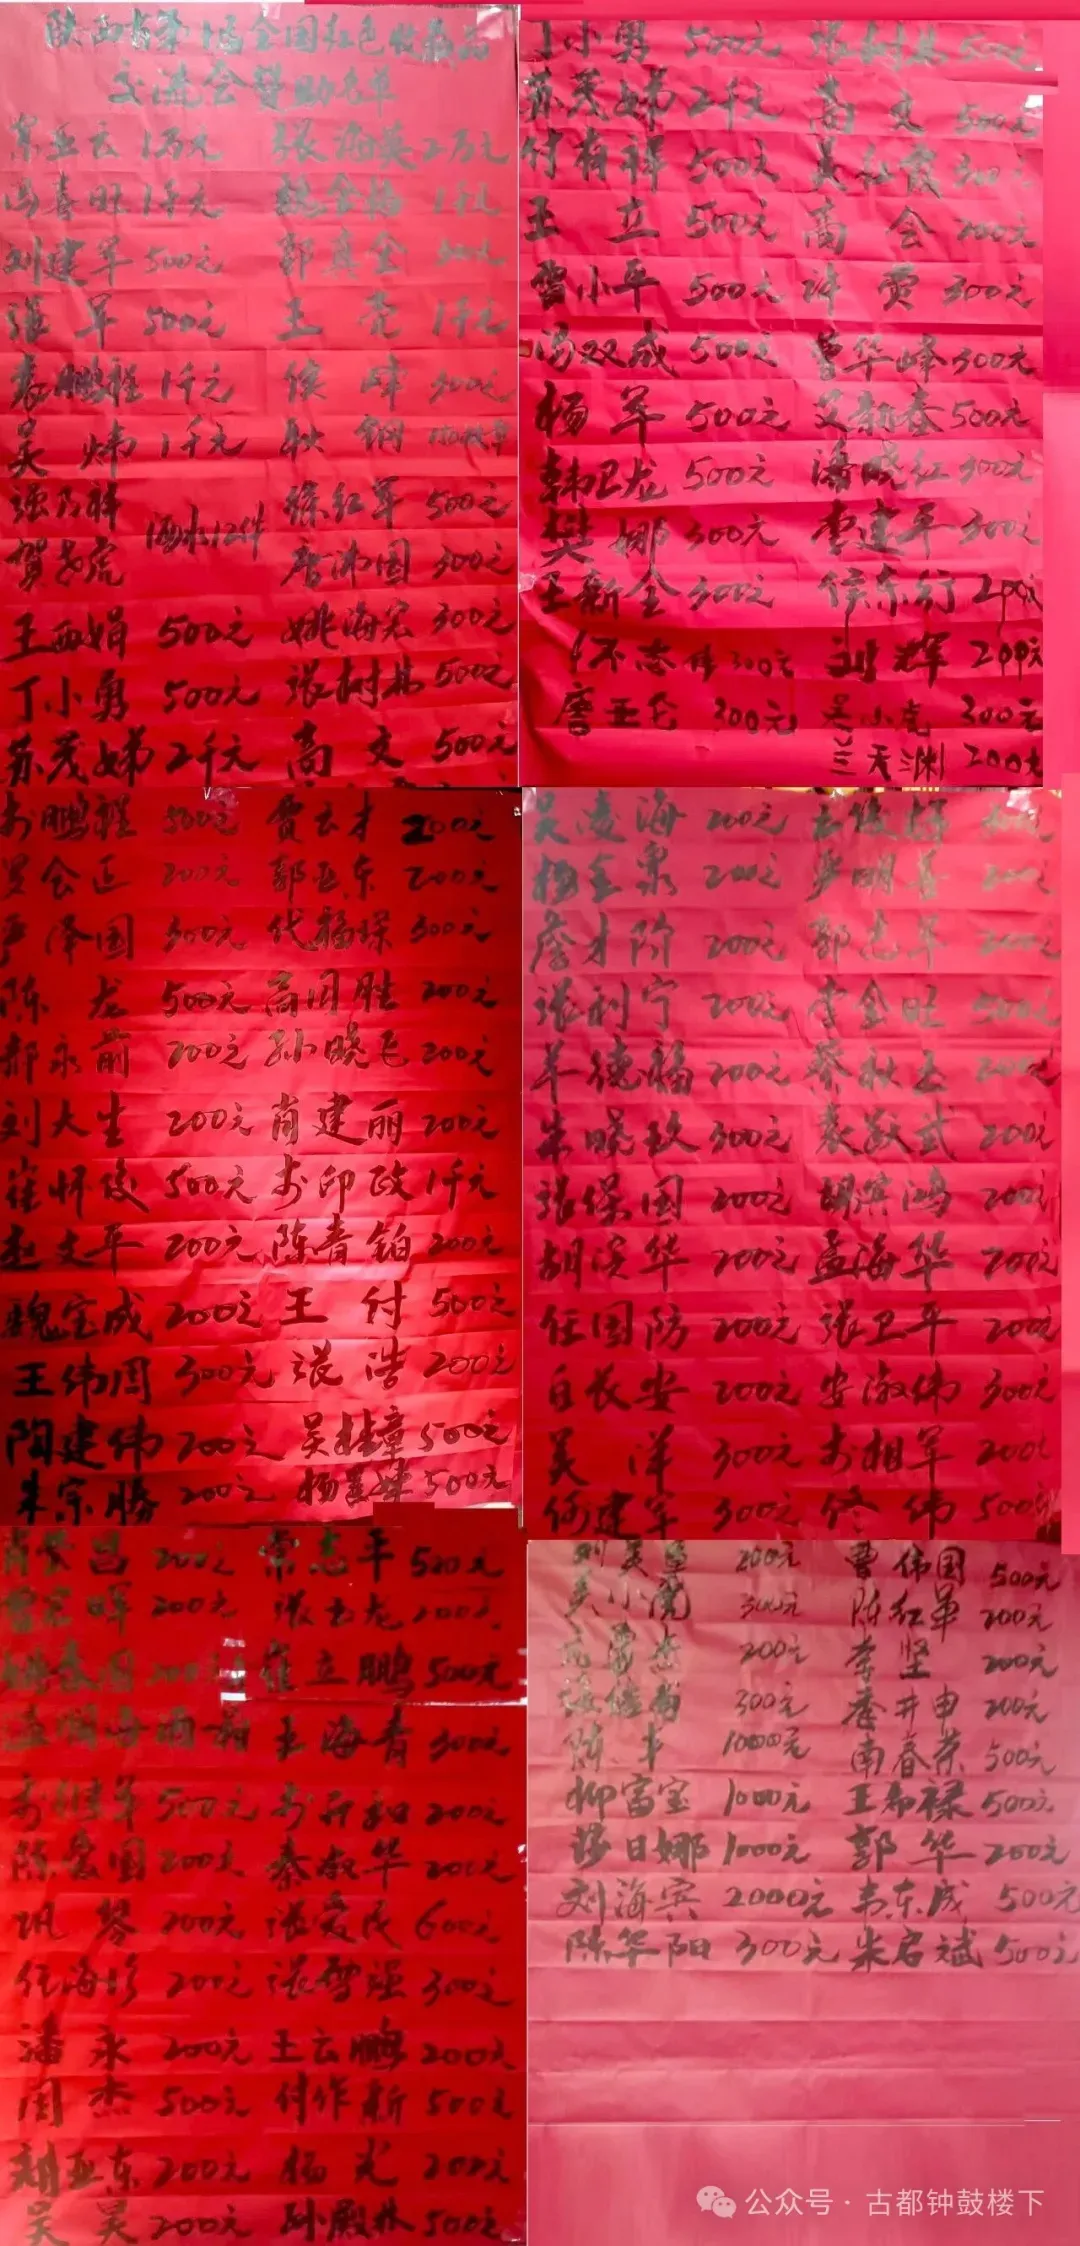 陕西省第1届全国红色收藏品
交流会赞助名单
1万元 张海英 2万元
冯喜旺 1千元 魏金梅 1千元
刘建军 500元 郭真金
张军 500元 王亮 1千元
袁鹏程 1千元 侯峰 300元
吴炜 1千元 耿钢
强乃祥 徐红军 500元
酒水12件
贺老虎 唐沛国 300元
王西娟 500元 姚海宏 300元
丁小勇 500元 张树林 500元
苏茂娣 2千元 高文 500元
丁小勇 500元 张树林 500元
苏茂娣 2千元 高文 500元
付有祥 500元 吴仙霞 300元
王立 500元 高会 200元
曹小平 500元 许贵 300元
冯双成 500元 曹华峰 300元
杨军 500元 艾新春 500元
韩卫龙 500元 潘晓红 300元
樊娜 300元 李建平 300元
王新全 300元 侯东行 200元
怀志伟 300元 刘辉 200元
詹亚仑 300元 吴小虎 300元
兰天渊 200元
鹏程 500元 贾云才 200元
罗会廷 200元 郭亚东 200元
严泽国 300元 代福琛 300元
陈龙 500元 高周胜 200元
郝永前 200元 孙晓飞 200元
刘大生 200元 肖建丽 200元
崔怀俊 500元 印政 1千元
赵文平 200元 陈青铂 200元
魏宝成 200元 王付 500元
王伟周 300元 张浩 200元
陶建伟 200元 吴桂章 500元
朱宗胜 200元 杨 500元
吴凌海 200元
杨全泉 200元 严明喜 200元
詹才阶 200元 郭志军 200元
张利宁 200元 李金旺 500元
羊德福 200元 蔡秋玉 200元
朱晓玖 300元 袁跃武 200元
张保国 200元 胡滨鸿 200元
胡滨华 200元 孟海华 200元
任国防 200元 张卫平 200元
白长安 200元 安淑伟 300元
吴洋 300元 相军 200元
何建军 300元 佟伟 500元
肖长昌 200元 常志平 500元
曹宏晖 200元 张玉龙 200元
崔立鹏 500元
王海青 300元
继军 500元 开和 200元
陈爱国 200元 秦淑华 200元
巩琴 200元 张爱民 600元
任海珍 200元 张智强 300元
潘永 200元 王云鹏 200元
周杰 500元 付作新 500元
赵亚东 200元 杨光 200元
吴昊 200元 孙殿林 500元
200元 曹伟国 500元
吴小虎 300元 陈红军 200元
200元 李坚 200元
300元 李井申 200元
陈平 10000元 南春荣 500元
柳富宝 1000元 王希禄 500元
莎日娜 1000元 郭华 200元
刘海宾 2000元 韦东成 500元
陈华阳 300元 朱启斌 500元
公众号·古都钟鼓楼下